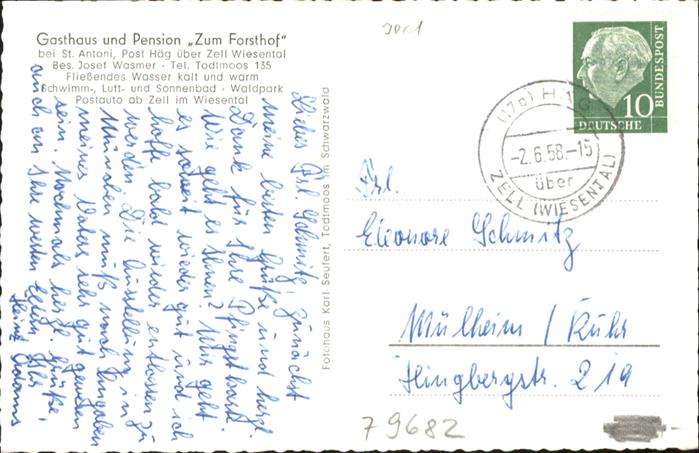 2001
Gasthaus und Pension „Zum Forsthof"
bei St. Antoni, Post Häg über Zell Wiesental
Bes. Josef Wasmer · Tel. Todtmoos 135
Fließendes Wasser kalt und warm
Schwimm-, Luft- und Sonnenbad · Waldpark
Postauto ab Zell im Wiesental
Liebes Frl. Schmitz, zunächst
meine besten Grüße und herzl.
Dank für Ihre Pfingstkarte.
Wie geht es Ihnen? Mir geht
es soweit wieder gut und ich
hoffe bald wieder entlassen zu
werden. Die Ausstellung in
München muß nach Angaben
meines Vaters sehr gut gewesen
sein. Nochmals herzl. Grüße,
auch an Ihre werten Eltern, Ihr
Heinz
Fotohaus Karl Seufert, Todtmoos im Schwarzwald
(17b) HÄG
-2.6.58.-15
über
ZELL (WIESENTAL)
10
DEUTSCHE
BUNDESPOST
Frl.
Eleonore Schmitz
Mülheim / Ruhr
Hingbergstr. 219
79682